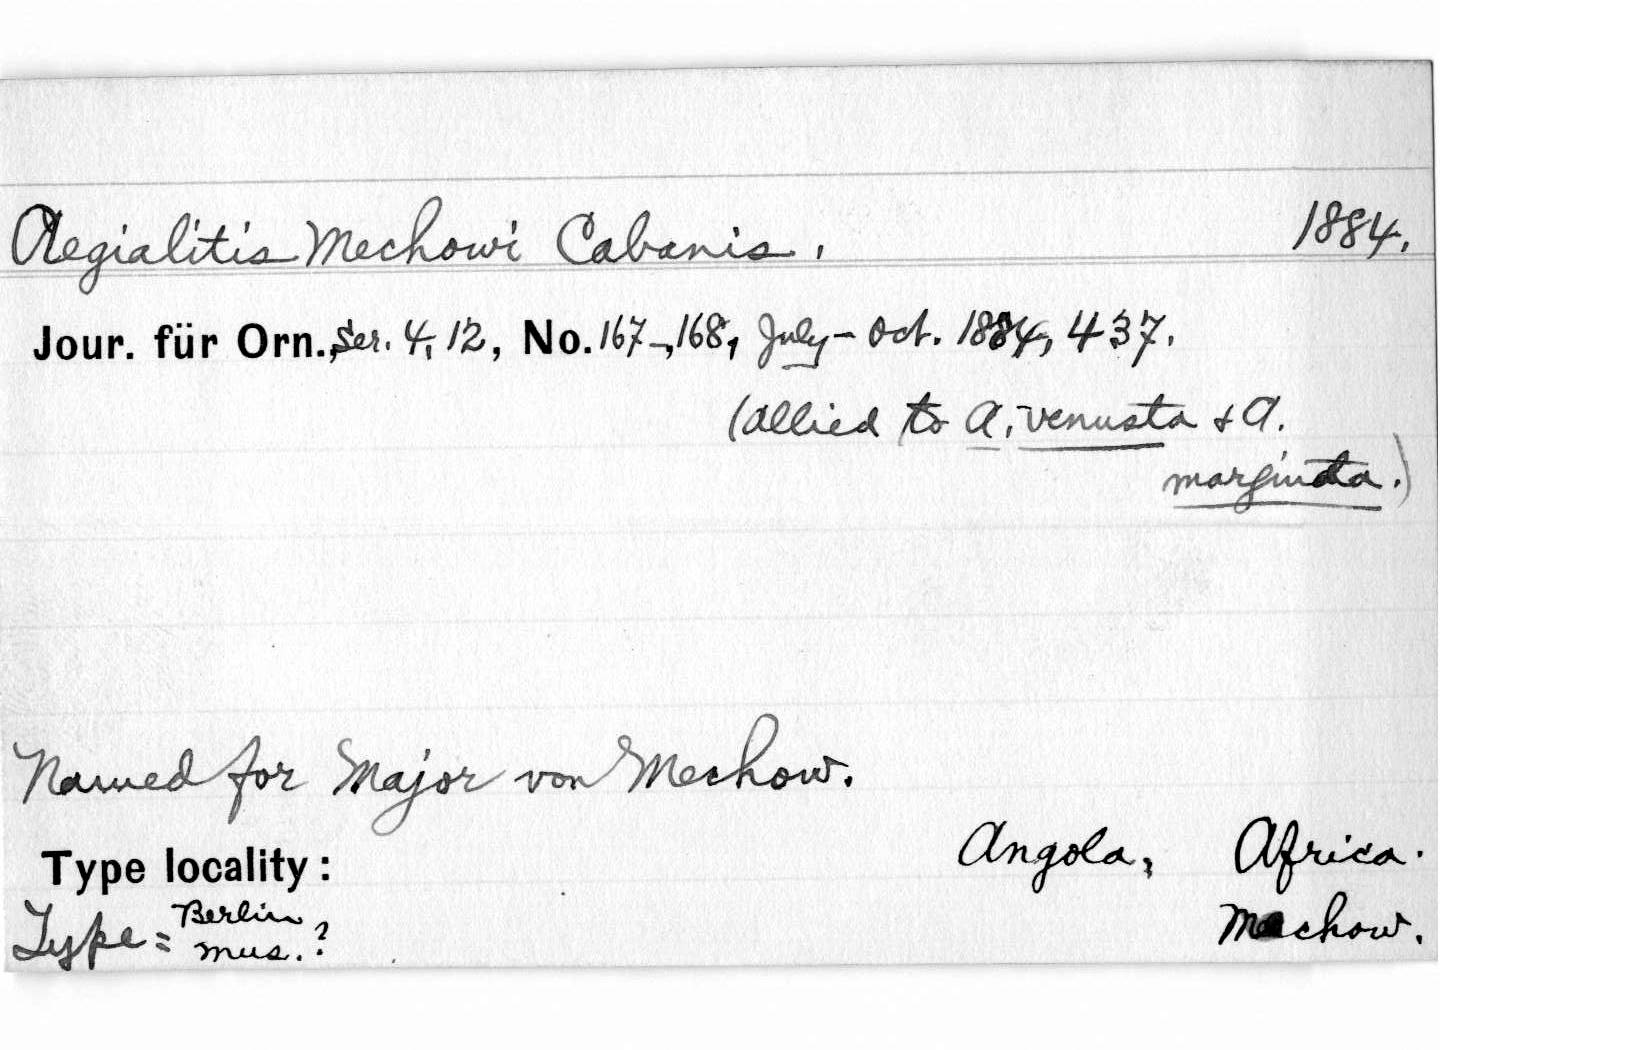 Aegialitis Mechowi Cabanis. 1884.
Jour. für Orn., Ser. 4, 12, No. 167-168, July - Oct. 1884, 437.
(allied to A. venusta & A.
marginata.)
Named for Major von Mechow.
Type locality: Angola, Africa.
Type = Berlin Mus.? Mechow.